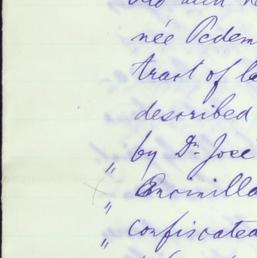 née Pedem
tract of la
described
by Dn. José
" Encinillo
" confiscated
"